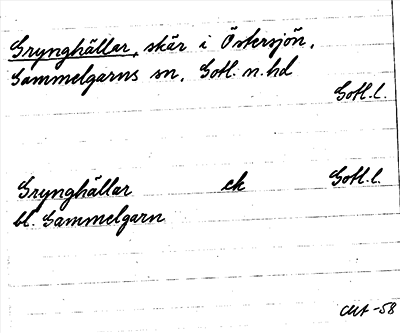 Grynghällar, skär i Östersjön,
Gammelgarns sn, Gotl. n. hd
Gotl. l.
Grynghällar ek Gotl. l.
bl. Gammelgarn
-58